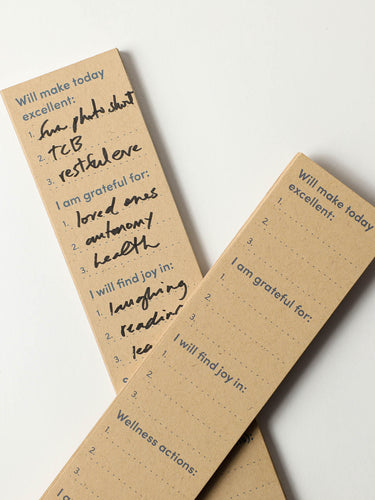 Will make today
excellent:
1. fun photo shoot
2. TCB
3. restful eve
I am grateful for:
1. loved ones
2. autonomy
3. health
I will find joy in:
1. laughing
2. reading
3.
Will make today
excellent:
1.
2.
3.
I am grateful for:
1.
2.
3.
I will find joy in:
1.
2.
3.
Wellness actions:
1.
2.
3.
I am g